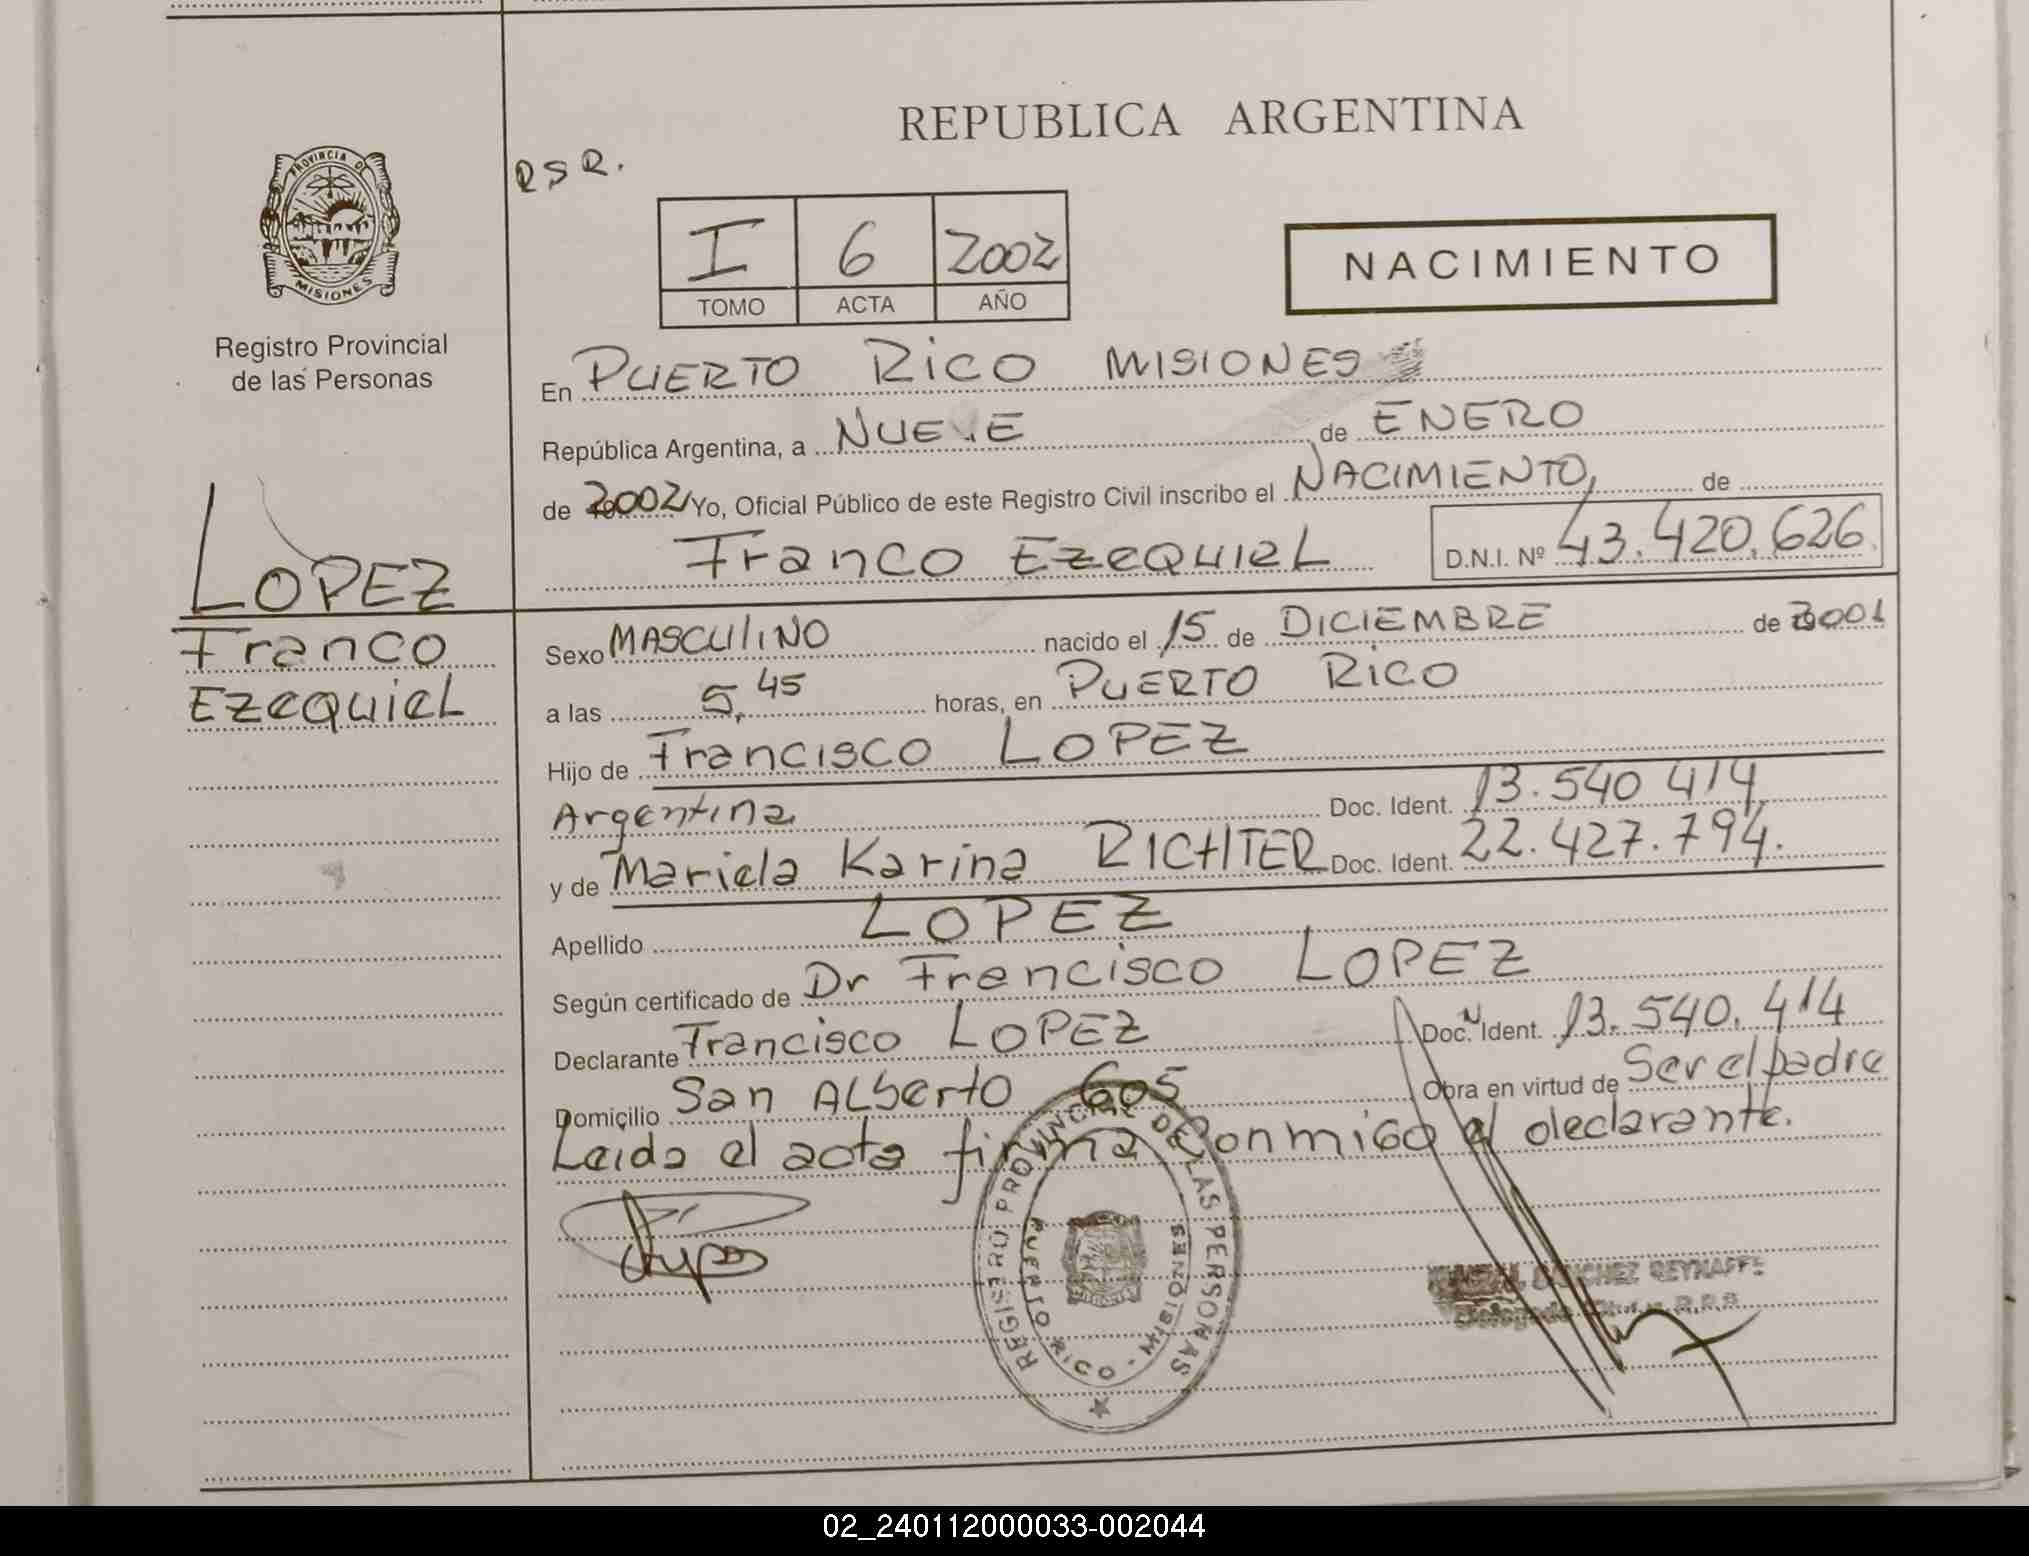 REPUBLICA ARGENTINA
RSR.
PROVINCIA DE MISIONES
I 6 2002
TOMO ACTA AÑO
NACIMIENTO
Registro Provincial
de las Personas
En PUERTO RICO MISIONES
República Argentina, a NUEVE de ENERO
de 2002 Yo, Oficial Público de este Registro Civil inscribo el NACIMIENTO, de
Franco EzequieL D.N.I. Nº 43.420.626.
LOPEZ
Franco
EzequieL
Sexo MASCULINO nacido el 15 de DICIEMBRE de 2001
a las 5,45 horas, en PUERTO RICO
Hijo de Francisco LOPEZ
Argentina Doc. Ident. 13.540 414
y de Mariela Karina RICHTER Doc. Ident. 22.427.794.
Apellido LOPEZ
Según certificado de Dr Francisco LOPEZ
Declarante Francisco LOPEZ Doc. Ident. 13.540.414
Domicilio San ALberto 605 Obra en virtud de Ser el padre
Leida el acta firma conmigo el declarante.
REGISTRO PROVINCIAL DE LAS PERSONAS
PUERTO RICO - MISIONES
SANCHEZ REYNAFFE
02_240112000033-002044